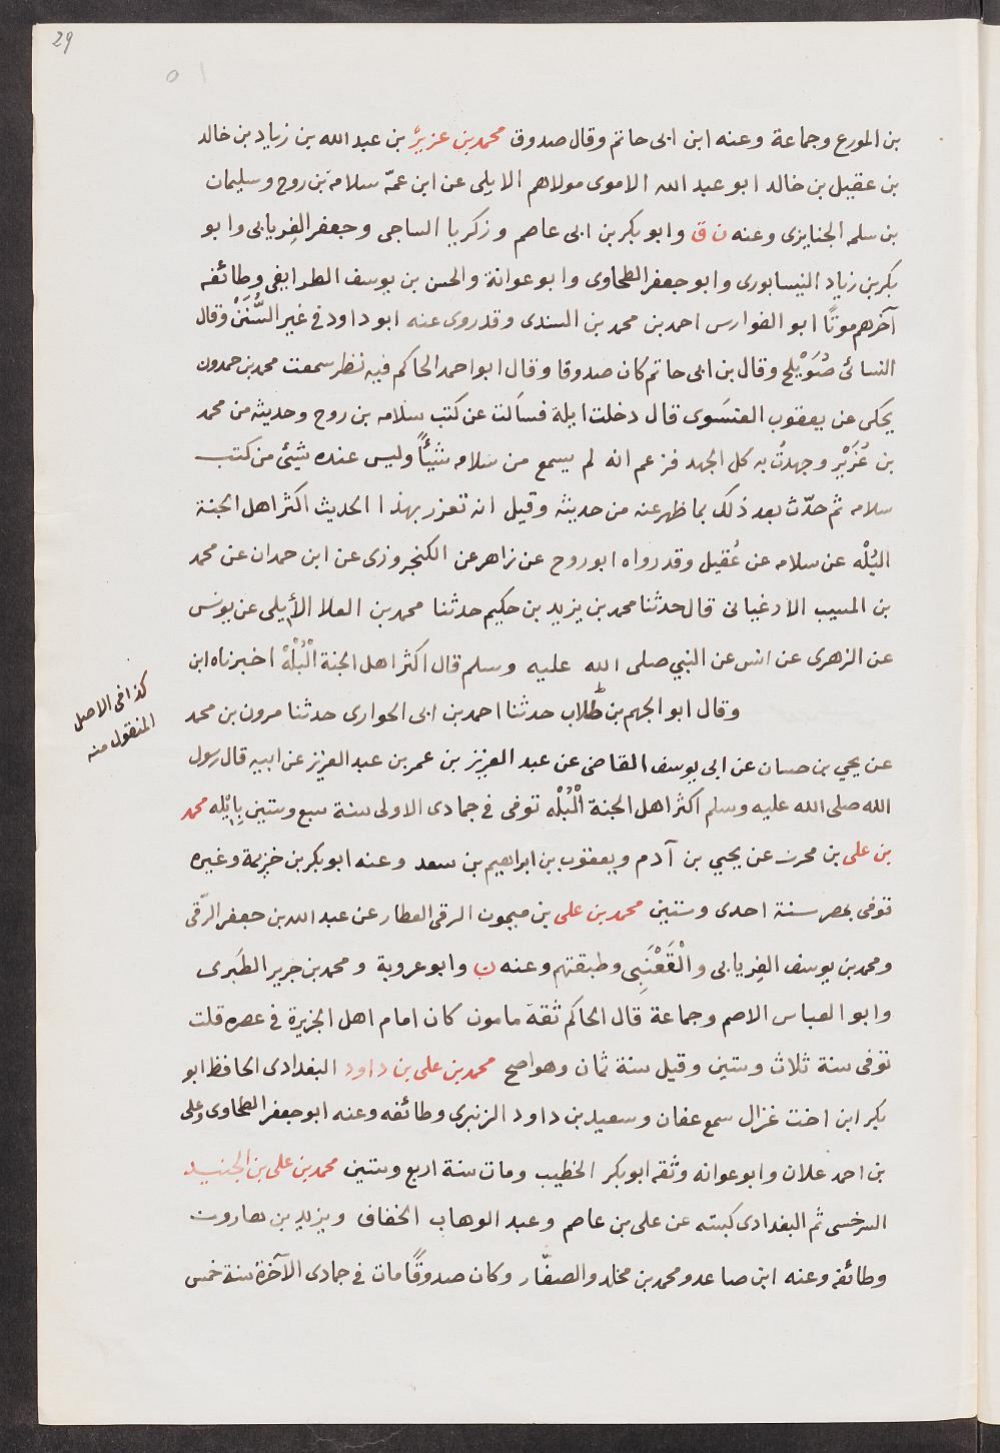 29
٥١
بن المورع وجماعة وعنه ابن ابى حاتم وقال صدوق محمد بن عزيز بن عبد الله بن زياد بن خالد
بن عقيل بن خالد ابو عبد الله الاموى مولاهم الايلى عن ابن عمّه سلامة بن روح وسليمان
بن سلمه الجنايزى وعنه ن ق وابو بكر بن ابى عاصم وزكريا الساجى وجعفر الفِريابى وابو
بكر بن زياد النيسابورى وابو جعفر الطحاوى وابو عوانة والحسن بن يوسف الطرايفى وطائفه
آخرهم موتًا ابو الفوارس احمد بن محمد بن السندى وقد روى عنه ابو داود فى غير السُّنَنْ وقال
النسائى صُوَيْلح وقال بن ابى حاتم كان صدوقا وقال ابو احمد الحاكم فيه نظر سمعت محمد بن حمدون
يحكى عن يعقوب الفسَوى قال دخلت ايلة فسألت عن كتب سلامه بن روح وحديثه من محمد
بن عُزَيْر وجهدتُ به كل الجهد فزعم انه لم يسمع من سلامه شيئًا وليس عنده شيئ من كتب
سلامه ثم حدّث بعد ذلك بما ظهر عنه من حديثه وقيل انه تعزر بهذا الحديث اكثر اهل الجنة
البُلْه عن سلامه عن عُقيل وقد رواه ابو روح عن زاهر عن الكنجروزى عن ابن حمدان عن محمد
بن المسيب الارغيانى قال حدثنا محمد بن يزيد بن حكيم حدثنا محمد بن العلا الأيلى عن يونس
عن الزهرى عن انس عن النبي صلى الله عليه وسلم قال اكثر اهل الجنة الْبُلْهْ اخبرناه ابن
وقال ابو الجهم بن طلاب حدثنا احمد بن ابى الحوارى حدثنا مرون بن محمد
كذا فى الاصل
المنقول منه
عن يحي بن حسان عن ابى يوسف القاضى عن عبد العزيز بن عمر بن عبد العزيز عن ابيه قال رسول
الله صلى الله عليه وسلم اكثر اهل الجنة الْبُلْه توفى فى جمادى الاولى سنة سبع وستين بايله محمد
بن على بن محرز عن يحيي بن آدم ويعقوب بن ابراهيم بن سعد وعنه ابو بكر بن خزيمة وغيره
توفى بمصر سنة احدى وستين محمد بن على بن ميمون الرقى العطار عن عبد الله بن جعفر الرّقى
ومحمد بن يوسف الفِريابى والْقَعْنَبِى وطبقتهم وعنه ن وابو عروبة ومحمد بن جرير الطَبَرى
وابو العباس الاصم وجماعة قال الحاكم ثقة مامون كان امام اهل الجزيرة فى عصره قلت
توفى سنة ثلاث وستين وقيل سنة ثمان وهو اصح محمد بن على بن داود البغدادى الحافظ ابو
بكر ابن اخت غزال سمع عفان وسعيد بن داود الزنبرى وطائفه وعنه ابو جعفر الطحاوى وعلى
بن احمد علان وابو عوانه وثقه ابو بكر الخطيب ومات سنة اربع وستين محمد بن على بن الجنيد
السرخسى ثم البغدادى كبسته عن على بن عاصم وعبد الوهاب الخفاف ويزيد بن هارون
وطائفه وعنه ابن صاعد ومحمد بن مخلد والصفّار وكان صدوقًا مات فى جمادى الآخرة سنة خمس